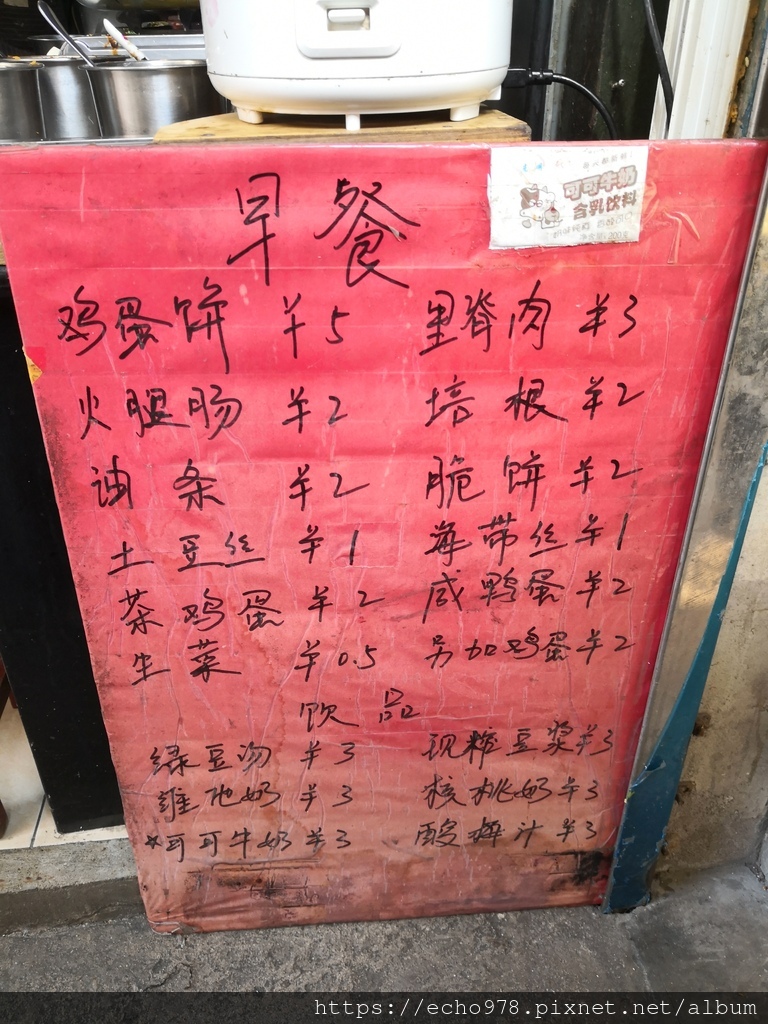 可可牛奶
含乳饮料
早餐
鸡蛋饼 ¥5 里脊肉 ¥3
火腿肠 ¥2 培根 ¥2
油条 ¥2 脆饼 ¥2
土豆丝 ¥1 海带丝 ¥1
茶鸡蛋 ¥2 咸鸭蛋 ¥2
生菜 ¥0.5 另加鸡蛋 ¥2
饮品
绿豆汤 ¥3 现榨豆浆 ¥3
维他奶 ¥3 核桃奶 ¥3
*可可牛奶 ¥3 酸梅汁 ¥3
https://echo978.pixnet.net/album